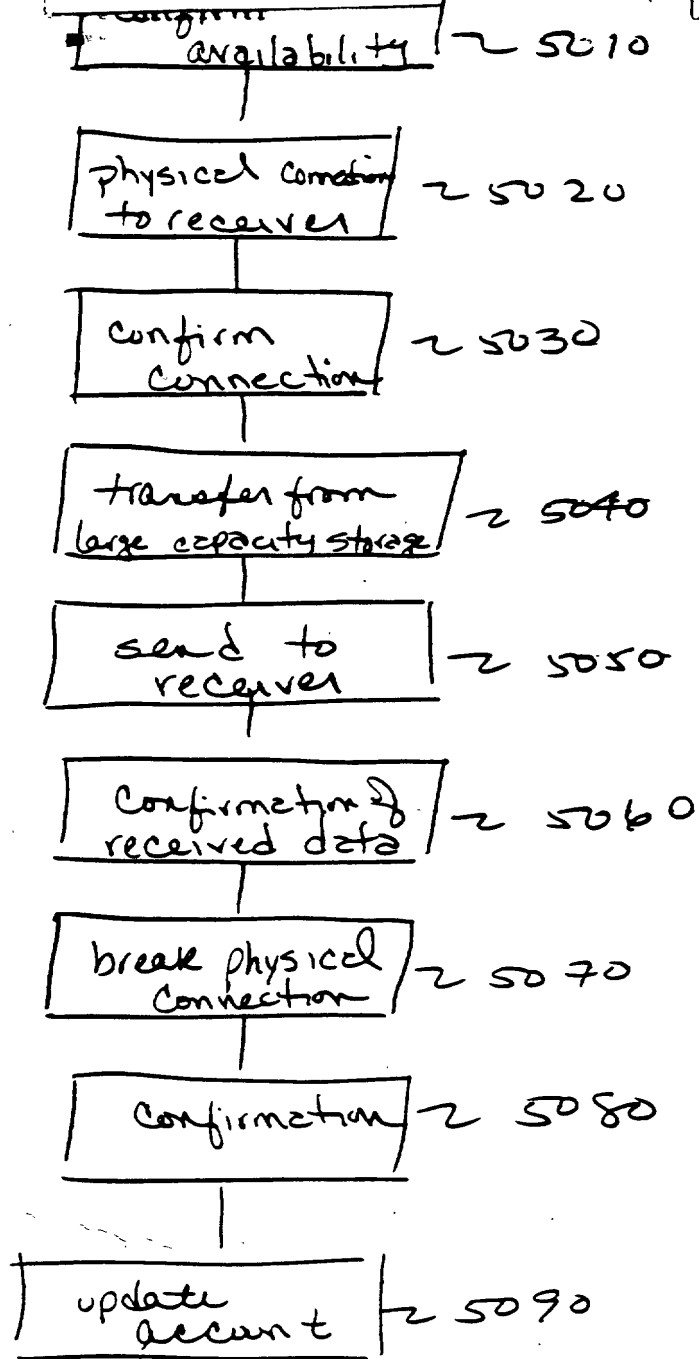 confirm
availability ~ 5010
physical connection ~ 5020
to receiver
confirm ~ 5030
connection
transfer from
large capacity storage ~ 5040
send to
receiver ~ 5050
confirmation of
received data ~ 5060
break physical ~ 5070
connection
confirmation ~ 5080
update ~ 5090
account